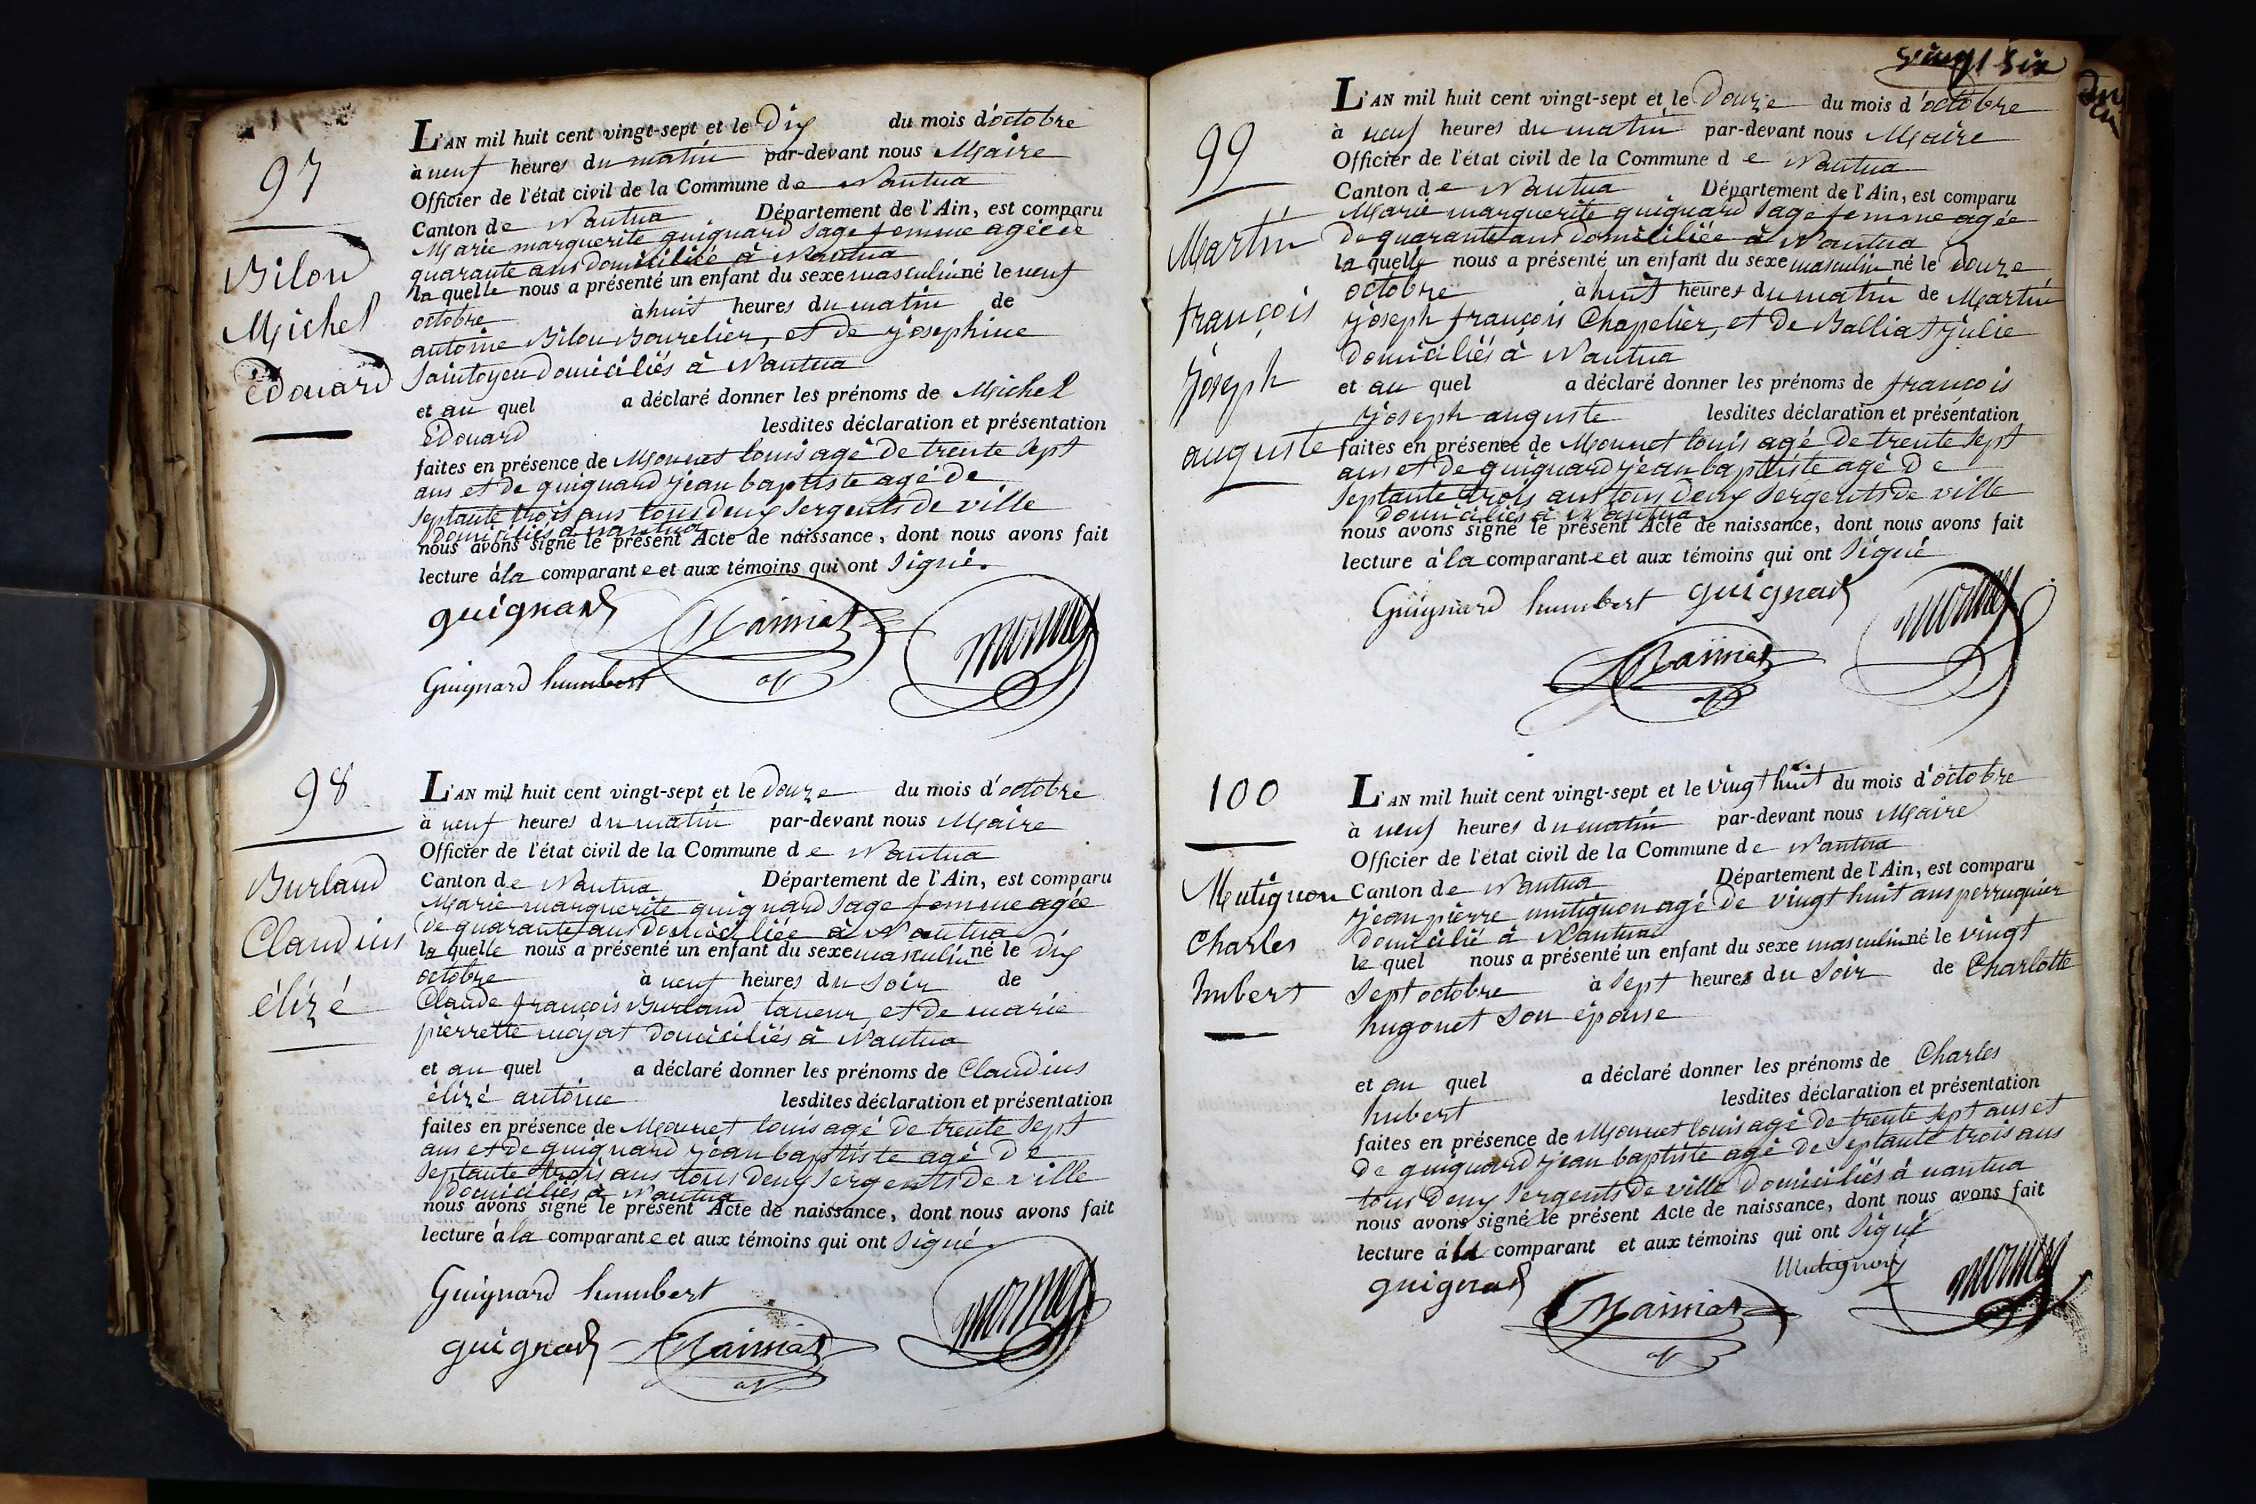 97
Bilon
Michel
édouard
L'AN mil huit cent vingt-sept et le dix du mois d'octobre
à neuf heures du matin par-devant nous Maire
Officier de l'état civil de la Commune de Nantua
Canton de Nantua Département de l'Ain, est comparu
Marie marguerite guignard sage femme agée de
quarante ans domiciliée à Nantua
la quelle nous a présenté un enfant du sexe masculin né le neuf
octobre à huit heures du matin de
antoine Bilon Bourelier, et de josephine
Saintoyen domiciliés à Nantua
et au quel a déclaré donner les prénoms de Michel
édouard lesdites déclaration et présentation
faites en présence de Monnet louis agé de trente sept
ans et de guignard jean baptiste agé de
septante trois ans tous deux sergents de ville
domiciliés à nantua
nous avons signé le présent Acte de naissance, dont nous avons fait
lecture à la comparante et aux témoins qui ont signé.
guignard
Guignard humbert
monnet
98
Burland
Claudius
élizé
L'AN mil huit cent vingt-sept et le douze du mois d'octobre
à neuf heures du matin par-devant nous Maire
Officier de l'état civil de la Commune de Nantua
Canton de Nantua Département de l'Ain, est comparu
Marie marguerite guignard sage femme agée
de quarante ans domiciliée à Nantua
la quelle nous a présenté un enfant du sexe masculin né le dix
octobre à neuf heures du soir de
Claude françois Burland taneur, et de marie
pierrette moyat domiciliés à Nantua
et au quel a déclaré donner les prénoms de Claudius
élizé antoine lesdites déclaration et présentation
faites en présence de Monnet louis agé de trente sept
ans et de guignard jean baptiste agé de
septante trois ans tous deux sergents de ville
domiciliés à Nantua
nous avons signé le présent Acte de naissance, dont nous avons fait
lecture à la comparante et aux témoins qui ont signé.
Guignard humbert
guignard
monnet
vingt six
99
Martin
françois
joseph
auguste
L'AN mil huit cent vingt-sept et le douze du mois d'octobre
à neuf heures du matin par-devant nous Maire
Officier de l'état civil de la Commune de Nantua
Canton de Nantua Département de l'Ain, est comparu
Marie marguerite guignard sage femme agée
de quarante ans domiciliée à Nantua
la quelle nous a présenté un enfant du sexe masculin né le douze
octobre à huit heures du matin de Martin
joseph françois Chapelier, et de Balliat julie
domiciliés à Nantua
et au quel a déclaré donner les prénoms de françois
joseph auguste lesdites déclaration et présentation
faites en présence de Monnet louis agé de trente sept
ans et de guignard jean baptiste agé de
septante trois ans tous deux sergents de ville
domiciliés à Nantua
nous avons signé le présent Acte de naissance, dont nous avons fait
lecture à la comparante et aux témoins qui ont signé
Guignard humbert guignard
monnet
100
Mutignon
Charles
hubert
L'AN mil huit cent vingt-sept et le vingt huit du mois d'octobre
à neuf heures du matin par-devant nous Maire
Officier de l'état civil de la Commune de Nantua
Canton de Nantua Département de l'Ain, est comparu
jean pierre mutignon agé de vingt huit ans perruquier
domicilié à Nantua
le quel nous a présenté un enfant du sexe masculin né le vingt
sept octobre à sept heures du soir de Charlotte
hugonet son épouse
et au quel a déclaré donner les prénoms de Charles
hubert lesdites déclaration et présentation
faites en présence de Monnet louis agé de trente sept ans et
de guignard jean baptiste agé de septante trois ans
tous deux sergents de ville domiciliés à nantua
nous avons signé le présent Acte de naissance, dont nous avons fait
lecture à comparant et aux témoins qui ont signé
guignard
Mutignon
monnet